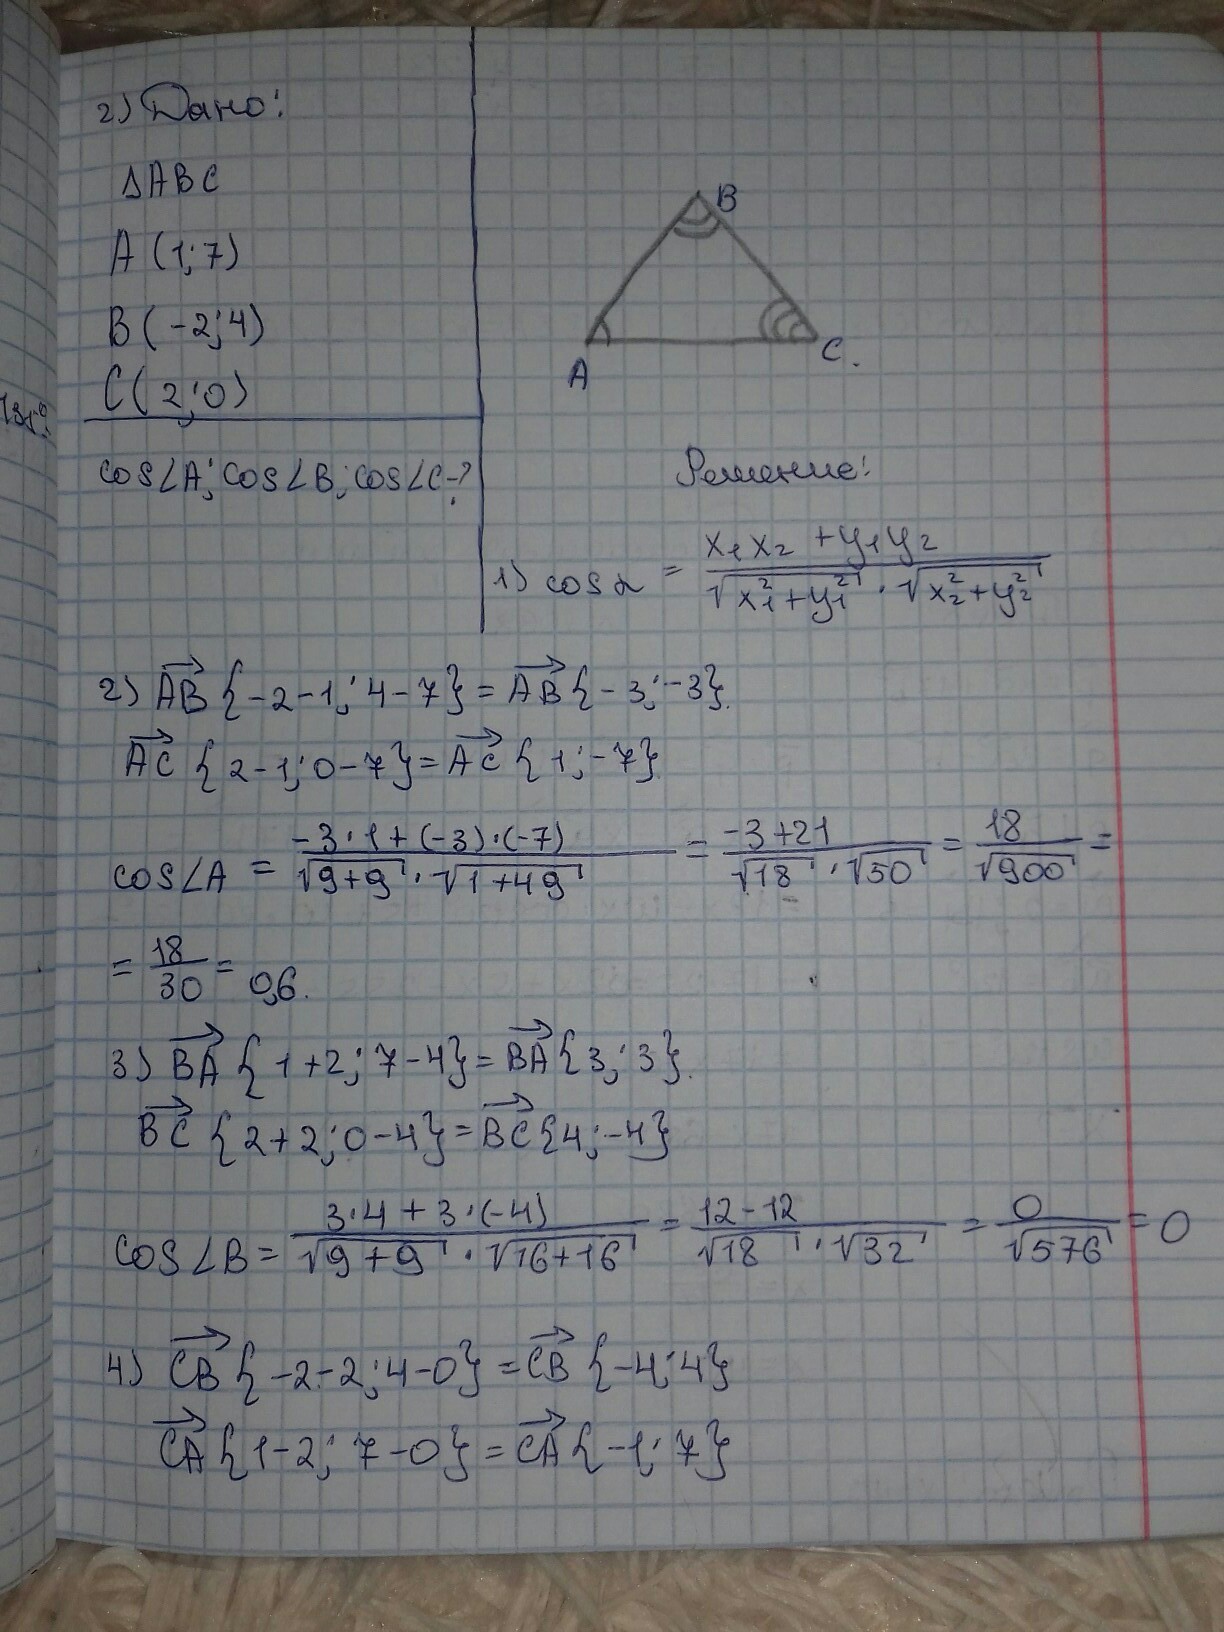 2) Дано:
ΔABC
A (1; 7)
B (-2; 4)
C (2; 0)
cos∠A; cos∠B; cos∠C-?
B
A
C.
Решение:
1) cos α = (x₁x₂ + y₁y₂) / (√(x₁² + y₁²) · √(x₂² + y₂²))
2) AB {-2-1; 4-7} = AB {-3; -3}.
AC {2-1; 0-7} = AC {1; -7}
cos∠A = (-3·1 + (-3)·(-7)) / (√(9+9) · √(1+49)) = (-3+21) / (√18 · √50) = 18/√900 =
= 18/30 = 0,6.
3) BA {1+2; 7-4} = BA {3; 3}.
BC {2+2; 0-4} = BC {4; -4}
cos∠B = (3·4 + 3·(-4)) / (√(9+9) · √(16+16)) = (12-12) / (√18 · √32) = 0/√576 = 0
4) CB {-2-2; 4-0} = CB {-4; 4}
CA {1-2; 7-0} = CA {-1; 7}